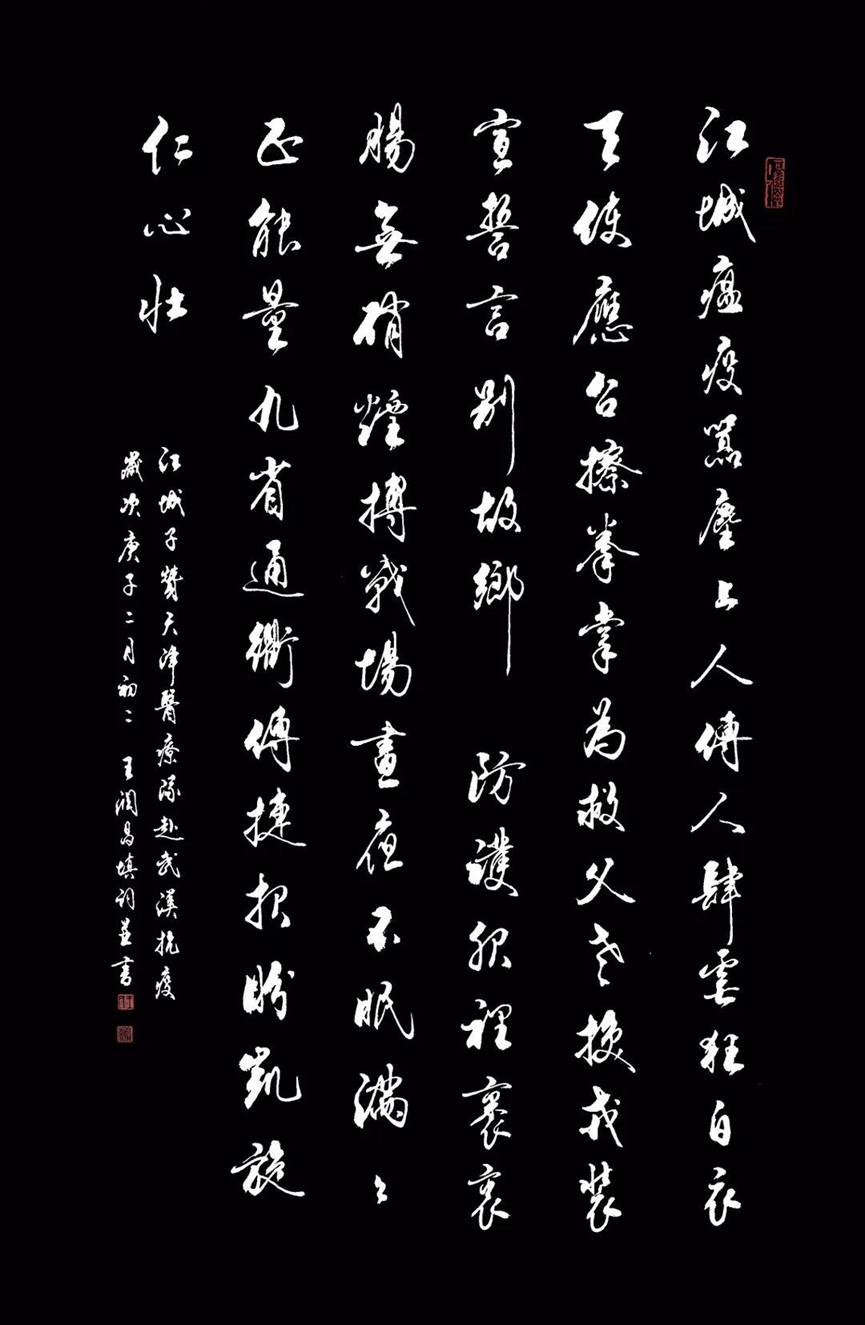 江城瘟疫囂塵上人傳人肆虐狂白衣
天使應召擦拳掌為救父老換戎裝
宣誓言別故鄉 防護服裡裹衷
腸無硝煙搏戰場晝夜不眠滿々
正能量九省通衢傳捷報盼凱旋
仁心壯
江城子贊天津醫療隊赴武漢抗疫
歲次庚子二月初二 王潤昌填詞並書